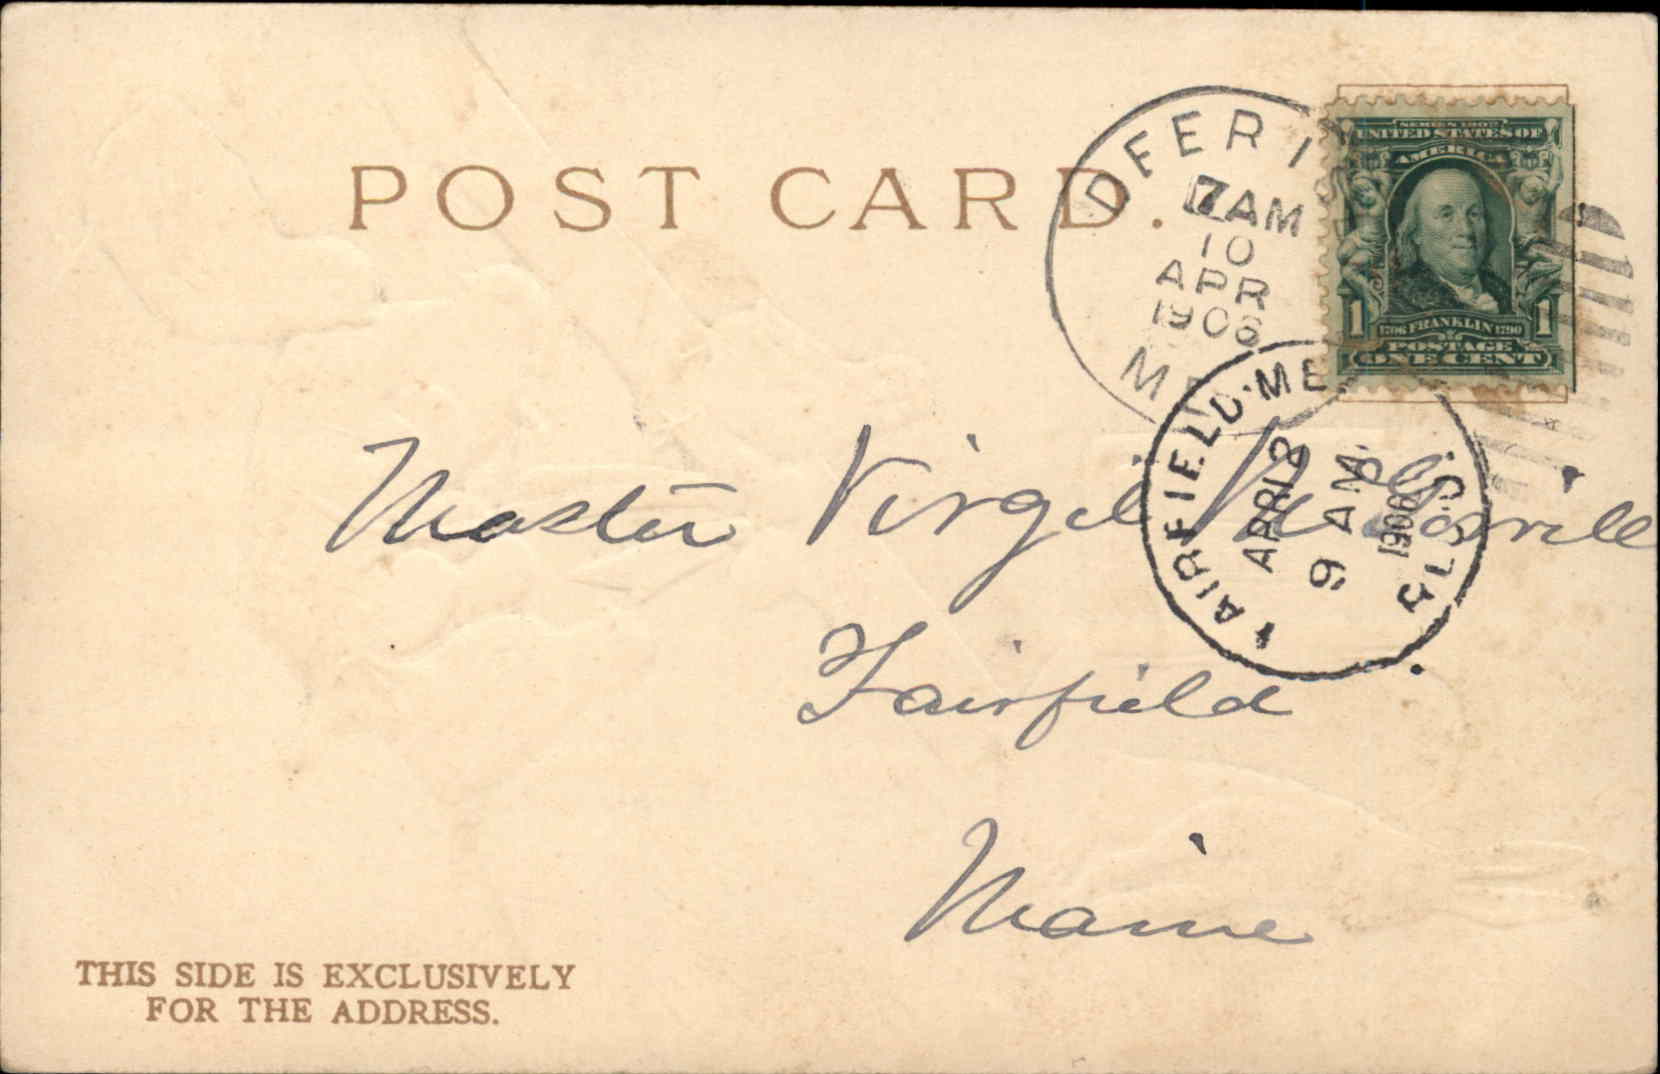 POST CARD.
DEERI
7AM
10
APR
1906
ME.
SERIES 1902
UNITED STATES OF
AMERICA
1 1706 FRANKLIN 1790 1
POSTAGE
ONE CENT
FAIRFIELD ME
APR 12
9 AM
1906
Master Virgil
Fairfield
Maine
THIS SIDE IS EXCLUSIVELY
FOR THE ADDRESS.